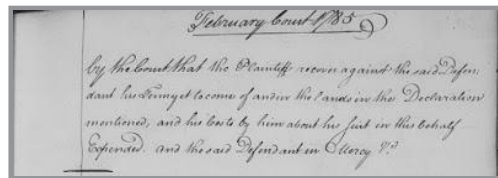 February Court 1785
by the Court that the Plaintiff recover against the said Defen:
dant his Term yet to come of and in the Lands in the Declaration
mentioned, and his Costs by him about his Suit in this behalf
Expended. and the said Defendant in Mercy &c.